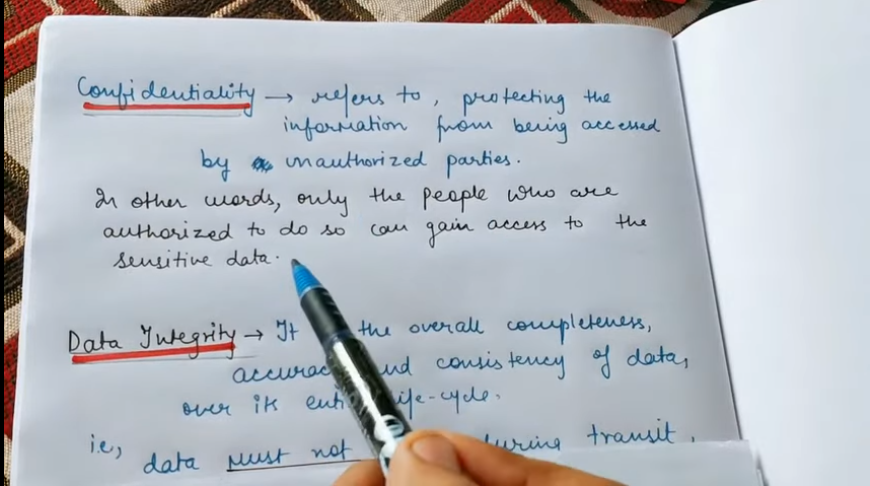 Confidentiality → refers to, protecting the
information from being accessed
by unauthorized parties.
In other words, only the people who are
authorized to do so can gain access to the
sensitive data.
Data Integrity → It the overall completeness,
and consistency of data,
over its life-cycle.
i.e, data must not during transit,